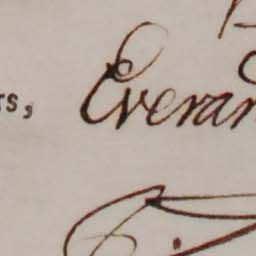 rs, Everar